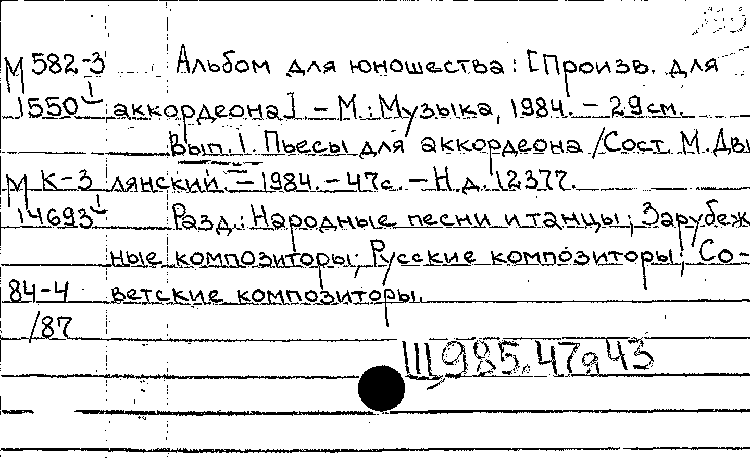 М 582-3 Альбом для юношества: [Произв. для
1550 аккордеона] – М.: Музыка, 1984. – 29 см.
Вып. 1. Пьесы для аккордеона / Сост. М. Дви
М К-3 лянский. – 1984. – 47 с. – Н.д. 12377.
14693 Разд.: Народные песни и танцы; Зарубеж
ные композиторы; Русские композиторы; Со-
84-4 ветские композиторы.
/87
Щ985.47я43